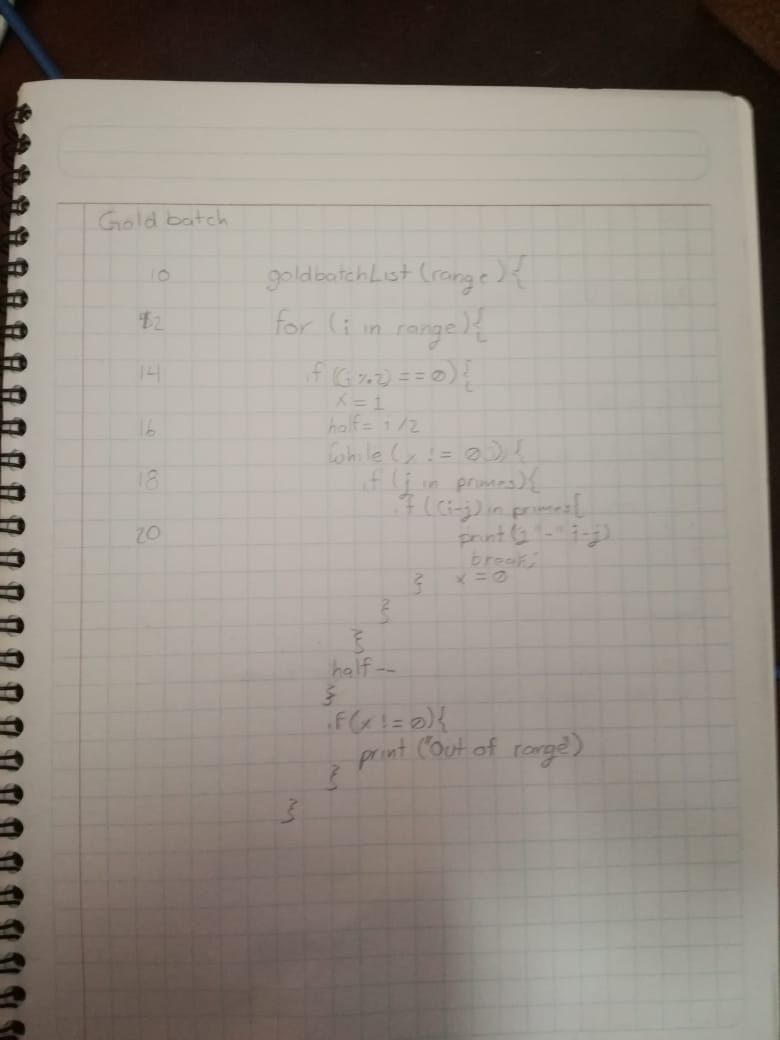 Gold batch
10 goldbatchList (range) {
12 for (i in range) {
14 if ((i % 2) == 0) {
x = 1
16 half = i /2
while (x != 0) {
18 if (j in primes) {
if ((i-j) in primes {
20 print (j "-" i-j)
break;
} x = 0
}
}
half --
}
if (x != 0) {
print ("Out of range")
}
}